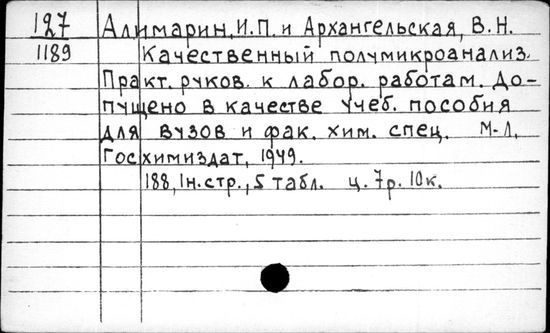 127 Алимарин, И.П. и Архангельская, В.Н.
1189 Качественный полумикроанализ.
Практ. руков. к лабор. работам. До-
пущено в качестве учеб. пособия
для вузов и фак. хим. спец. М-Л,
Госхимиздат, 1949.
188, 1н.стр., 5 табл. ц. 7р. 10к.